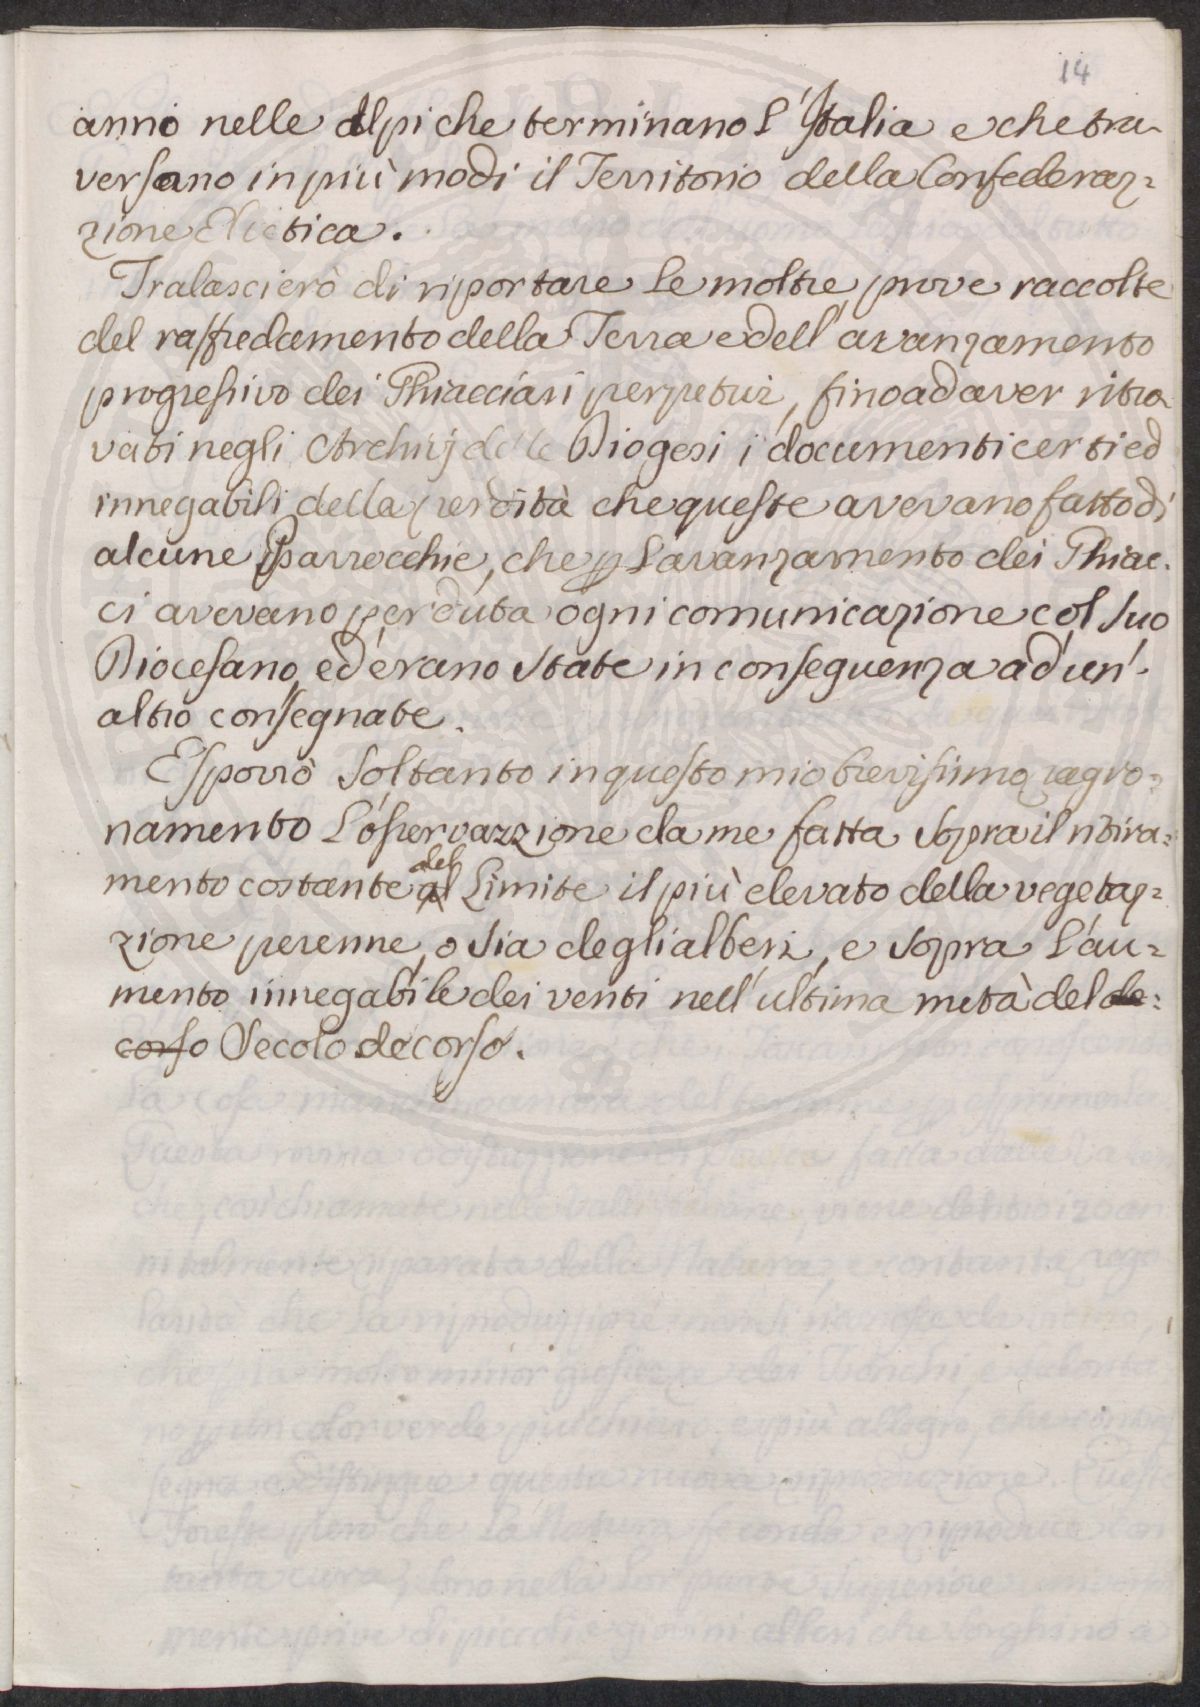 14
anno nelle Alpi che terminano l'Italia e che tra-
versano in più modi il Territorio della Confederaz=
zione Elvetica.
Tralascierò di riportare le moltre prove raccolte
del raffredamento della Terra e dell'avanzamento
progressivo dei Ghiacciari perpetui, fino ad aver ritro-
vati negli Archivj delle Diogesi i documenti certi ed
innegabili della perdità che queste avevano fatto di
alcune Parrocchie, che p l'avanzamento dei Ghiac-
ci avevano perduta ogni comunicazione col suo
Diocesano, ed erano state in conseguenza ad un'
altro consegnate.
Esporrò soltanto in questo mio brevissimo ragio=
namento l'osservazzione da me fatta sopra il ritira=
mento costante del Limite il più elevato della vegetaz=
zione perenne, o sia degli alberi, e sopra l'au=
mento innegabile dei venti nell'ultima metà del de=
corso Secolo decorso.